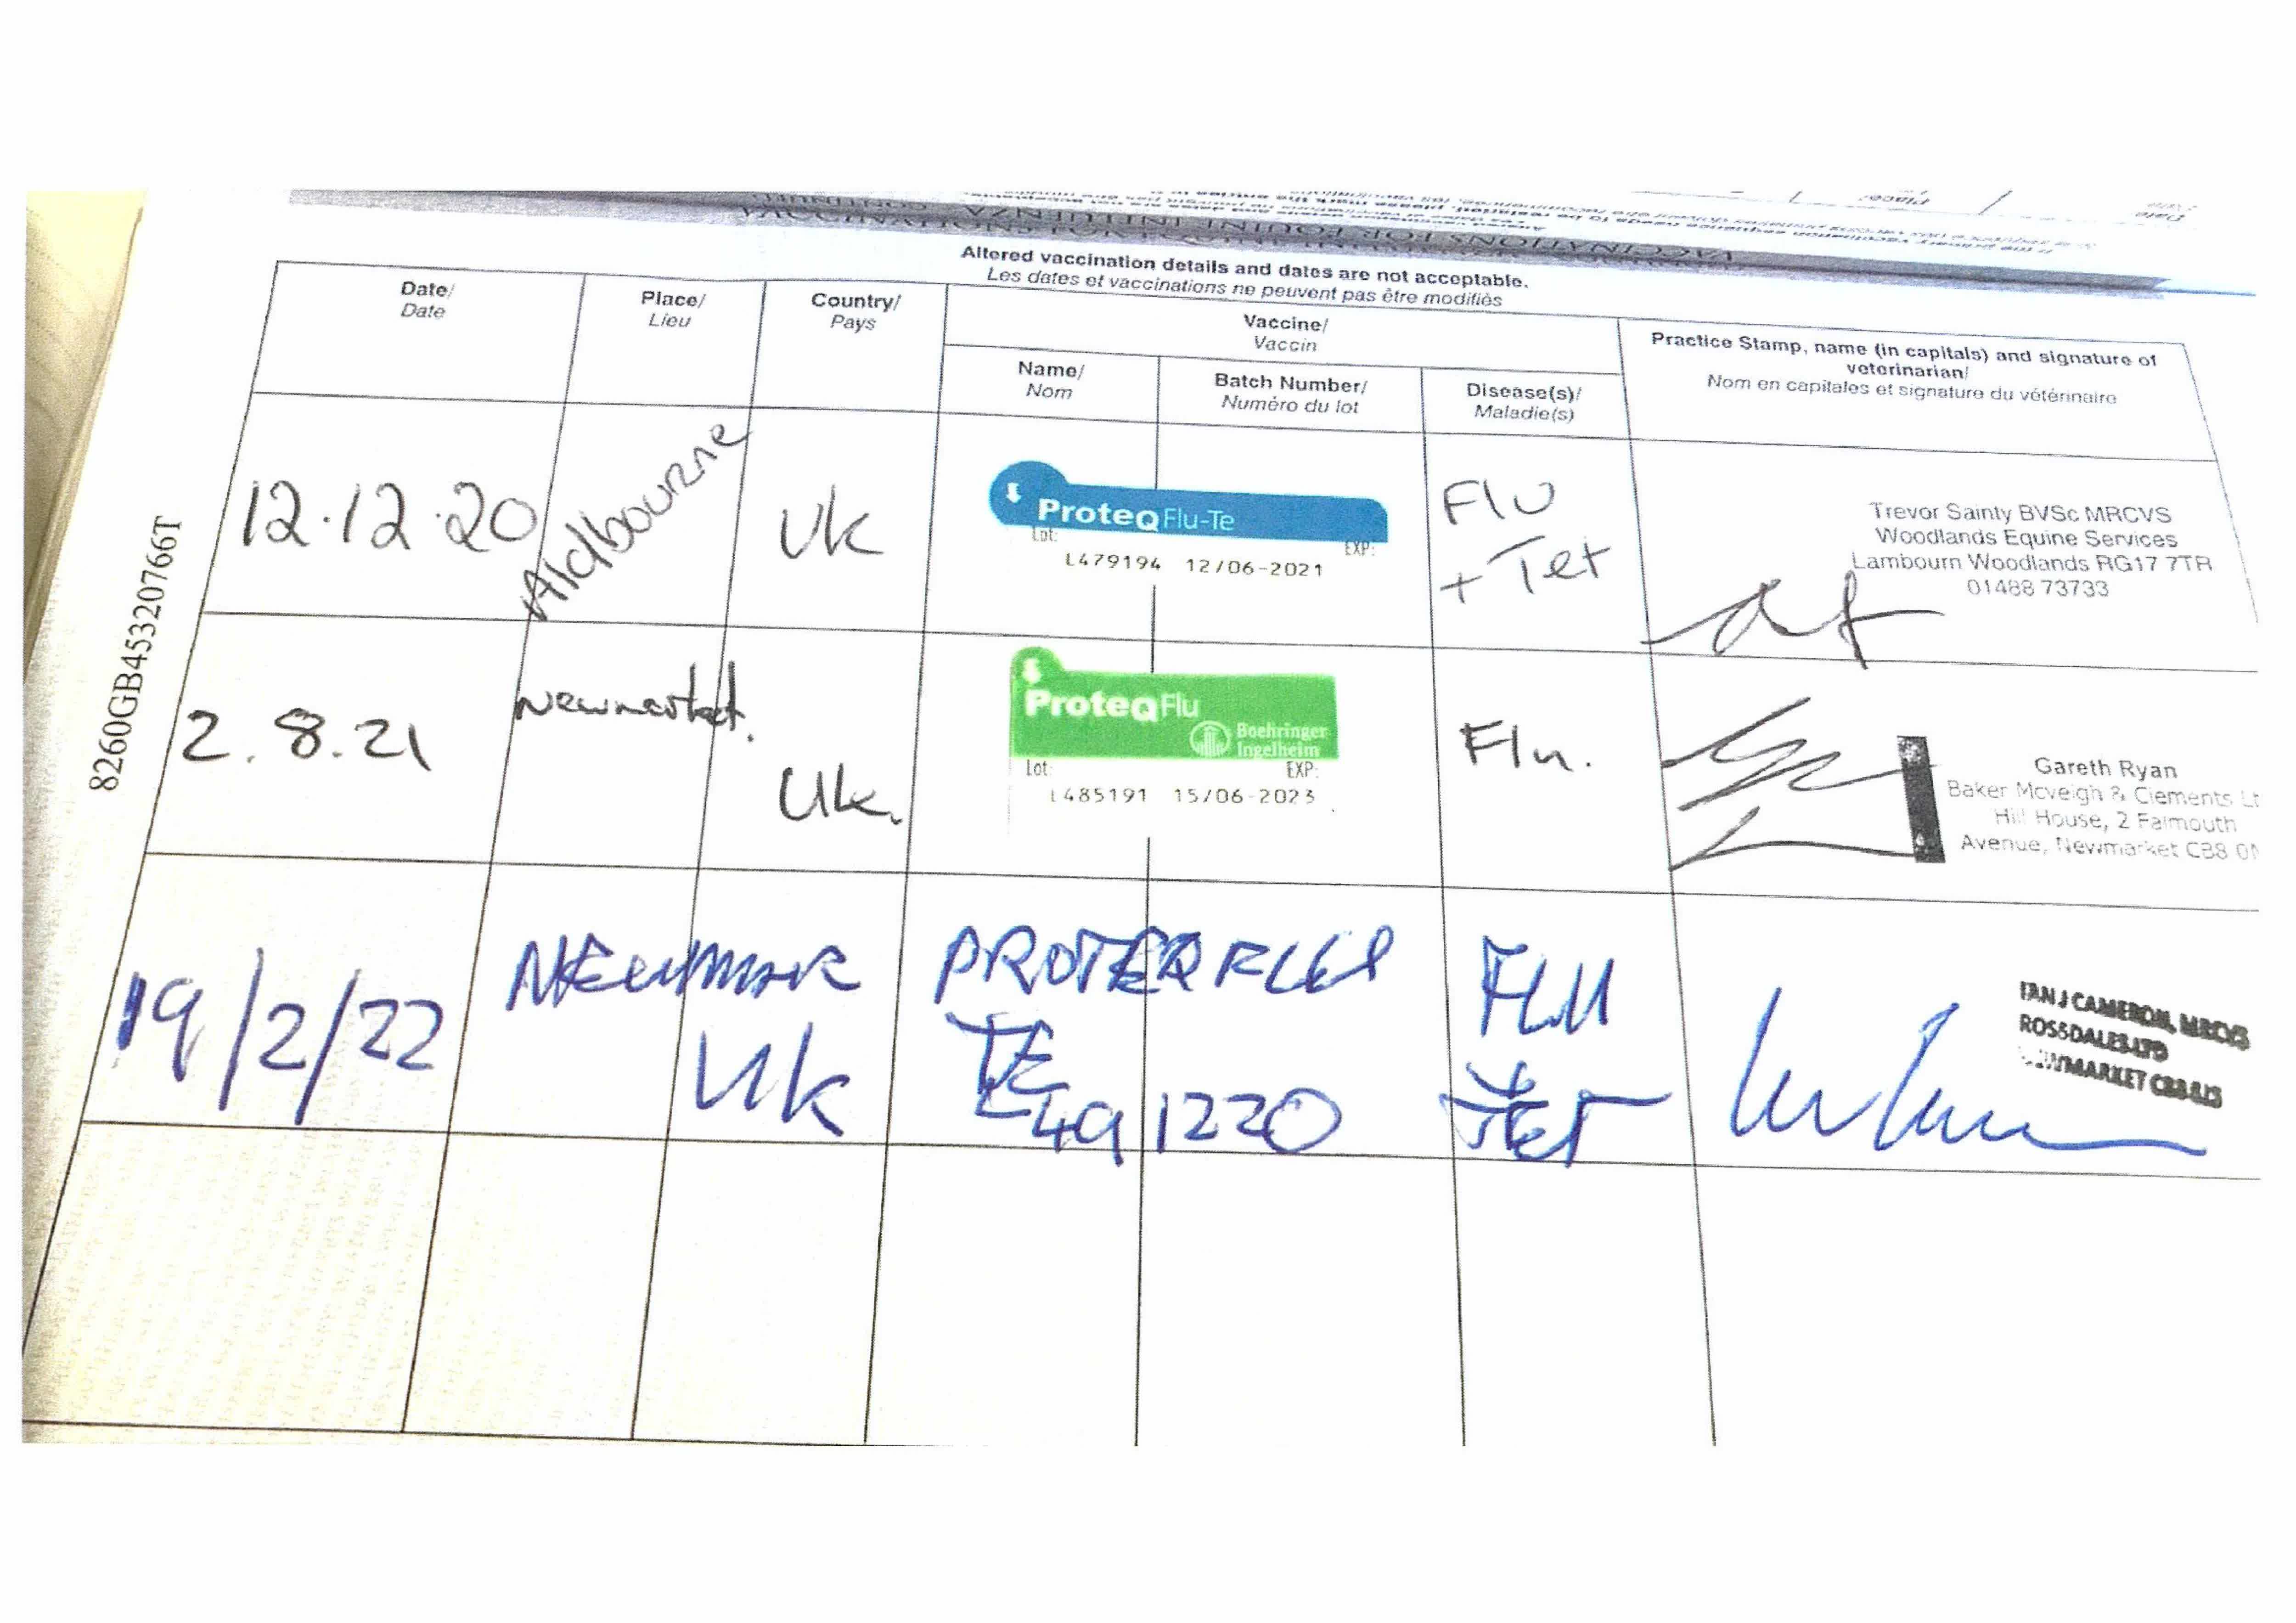 Altered vaccination details and dates are not acceptable.
Les dates et vaccinations ne peuvent pas être modifiés
Date/
Date
Place/
Lieu
Country/
Pays
Vaccine/
Vaccin
Name/
Nom
Batch Number/
Numéro du lot
Disease(s)/
Maladie(s)
Practice Stamp, name (in capitals) and signature of
veterinarian/
Nom en capitales et signature du vétérinaire
8260GB45320766T
12.12.20
Aldbourne
Uk
ProteqFlu-Te
Lot: EXP:
L479194 12/06-2021
Flu
+ Tet
Trevor Sainty BVSc MRCVS
Woodlands Equine Services
Lambourn Woodlands RG17 7TR
01488 73733
2.8.21
Newmarket.
Uk.
ProteqFlu
Boehringer
Ingelheim
Lot: EXP:
L485191 15/06-2023
Flu.
Gareth Ryan
Baker Mcveigh & Clements Lt
Hill House, 2 Falmouth
Avenue, Newmarket CB8 0N
19/2/22
NEWMAR
Uk
PROTEQ FLU
TE
L491220
FLU
+
TET
IAN J CAMERON, MRCVS
ROSSDALES LTD
NEWMARKET CB8